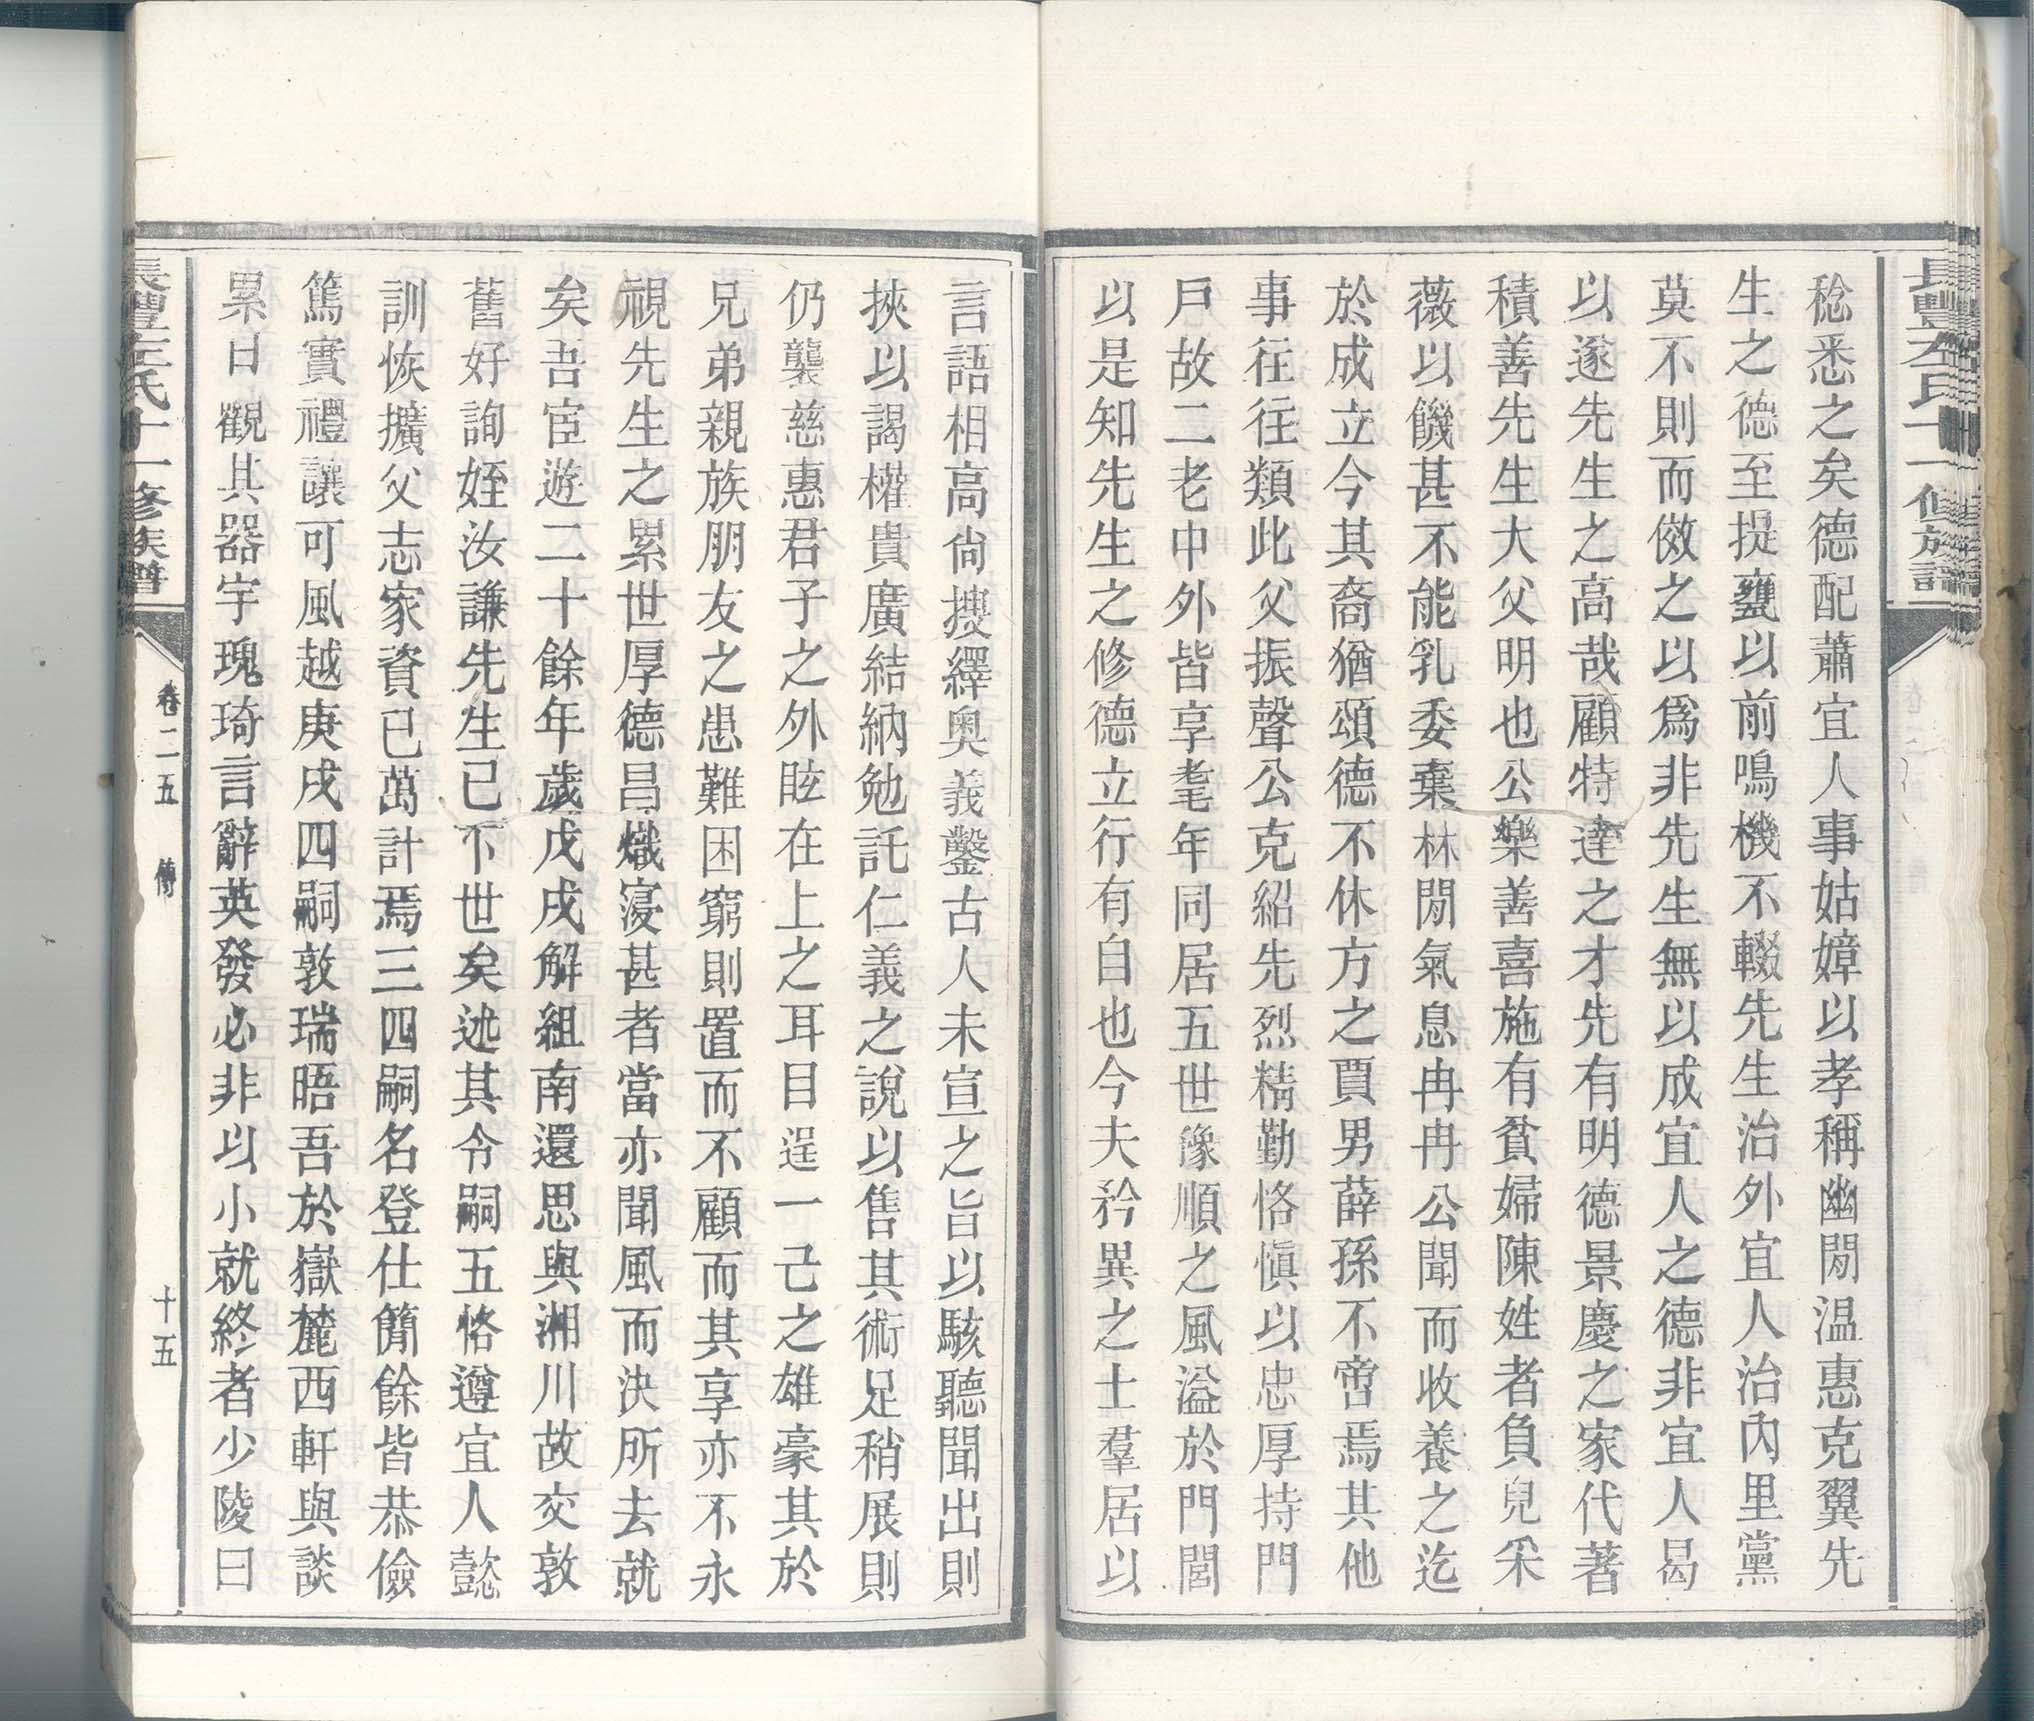 長豐左氏十一修族譜
稔悉之矣德配蕭宜人事姑嫜以孝稱幽閒温惠克翼先
生之德至提甕以前鳴機不輟先生治外宜人治內里黨
莫不則而傚之以爲非先生無以成宜人之德非宜人曷
以遂先生之高哉顧特達之才先有明德景慶之家代著
積善先生大父明也公樂善喜施有貧婦陳姓者負兒采
薇以饑甚不能乳委棄林閒氣息冉冉公聞而收養之迄
於成立今其裔猶頌德不休方之賈男薛孫不啻焉其他
事往往類此父振聲公克紹先烈精勤恪愼以忠厚持門
戶故二老中外皆享耄年同居五世豫順之風溢於門閭
以是知先生之修德立行有自也今夫矜異之士羣居以
言語相高尙搜繹奧義鑿古人未宣之旨以駭聽聞出則
挾以謁權貴廣結納勉託仁義之說以售其術足稍展則
仍襲慈惠君子之外眩在上之耳目逞一己之雄豪其於
兄弟親族朋友之患難困窮則置而不顧而其享亦不永
視先生之累世厚德昌熾寖甚者當亦聞風而決所去就
矣吾宦遊二十餘年歲戊戌解組南還思與湘川故交敦
舊好詢姪汝謙先生已下世矣述其令嗣五恪遵宜人懿
訓恢擴父志家資已萬計焉三四嗣名登仕簡餘皆恭儉
篤實禮讓可風越庚戌四嗣敦瑞晤吾於嶽麓西軒與談
累日觀其器宇瑰琦言辭英發必非以小就終者少陵曰
長豐左氏十一修族譜
卷二五 傳
十五